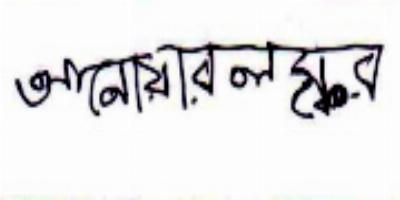 আনোয়ার লস্কর